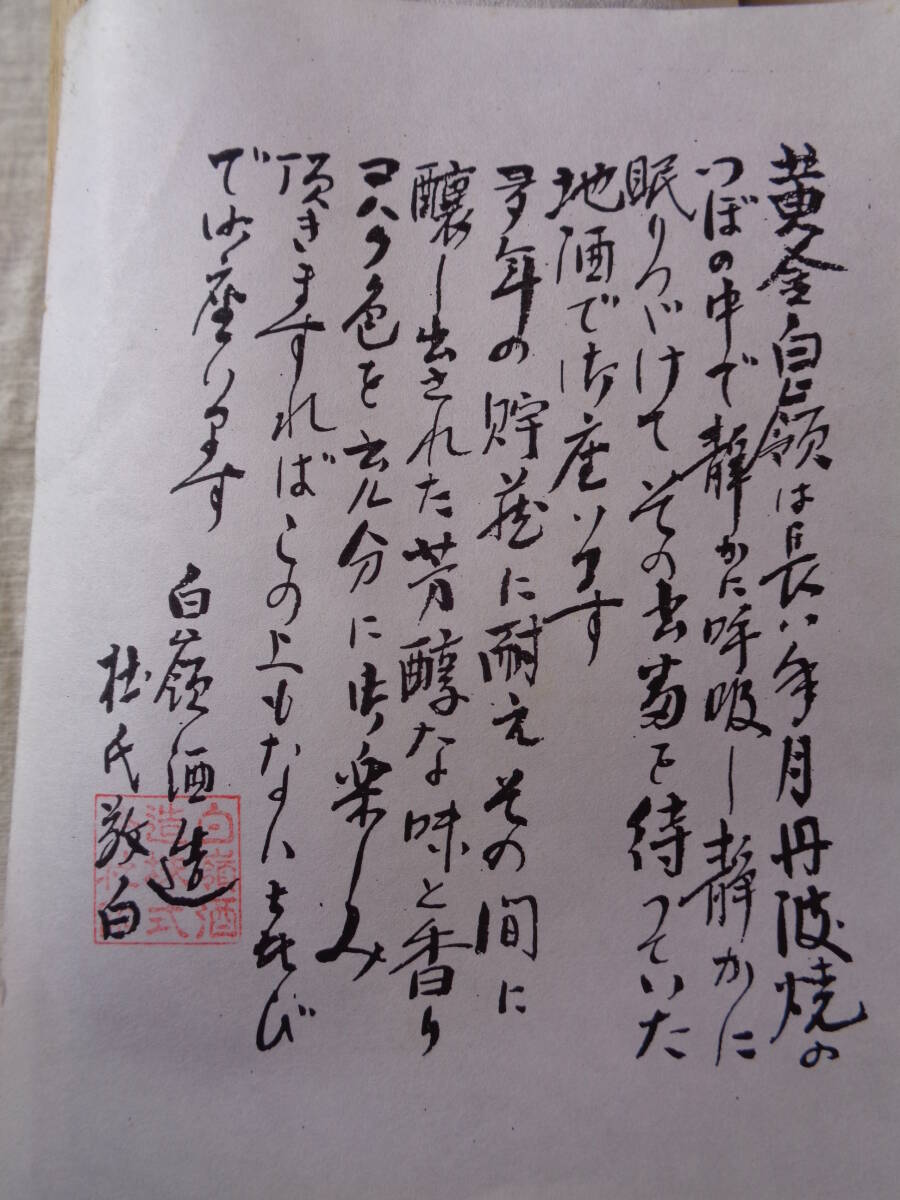 黄金白嶺は長い年月丹波焼の
つぼの中で静かに呼吸し静かに
眠りつづけてその出番を待っていた
地酒で御座います
多年の貯蔵に耐えその間に
醸し出された芳醇な味と香り
コハク色を充分に御楽しみ
頂きますればこの上もない喜び
で御座います
白嶺酒造
杜氏敬白
白嶺酒
造株式
会社